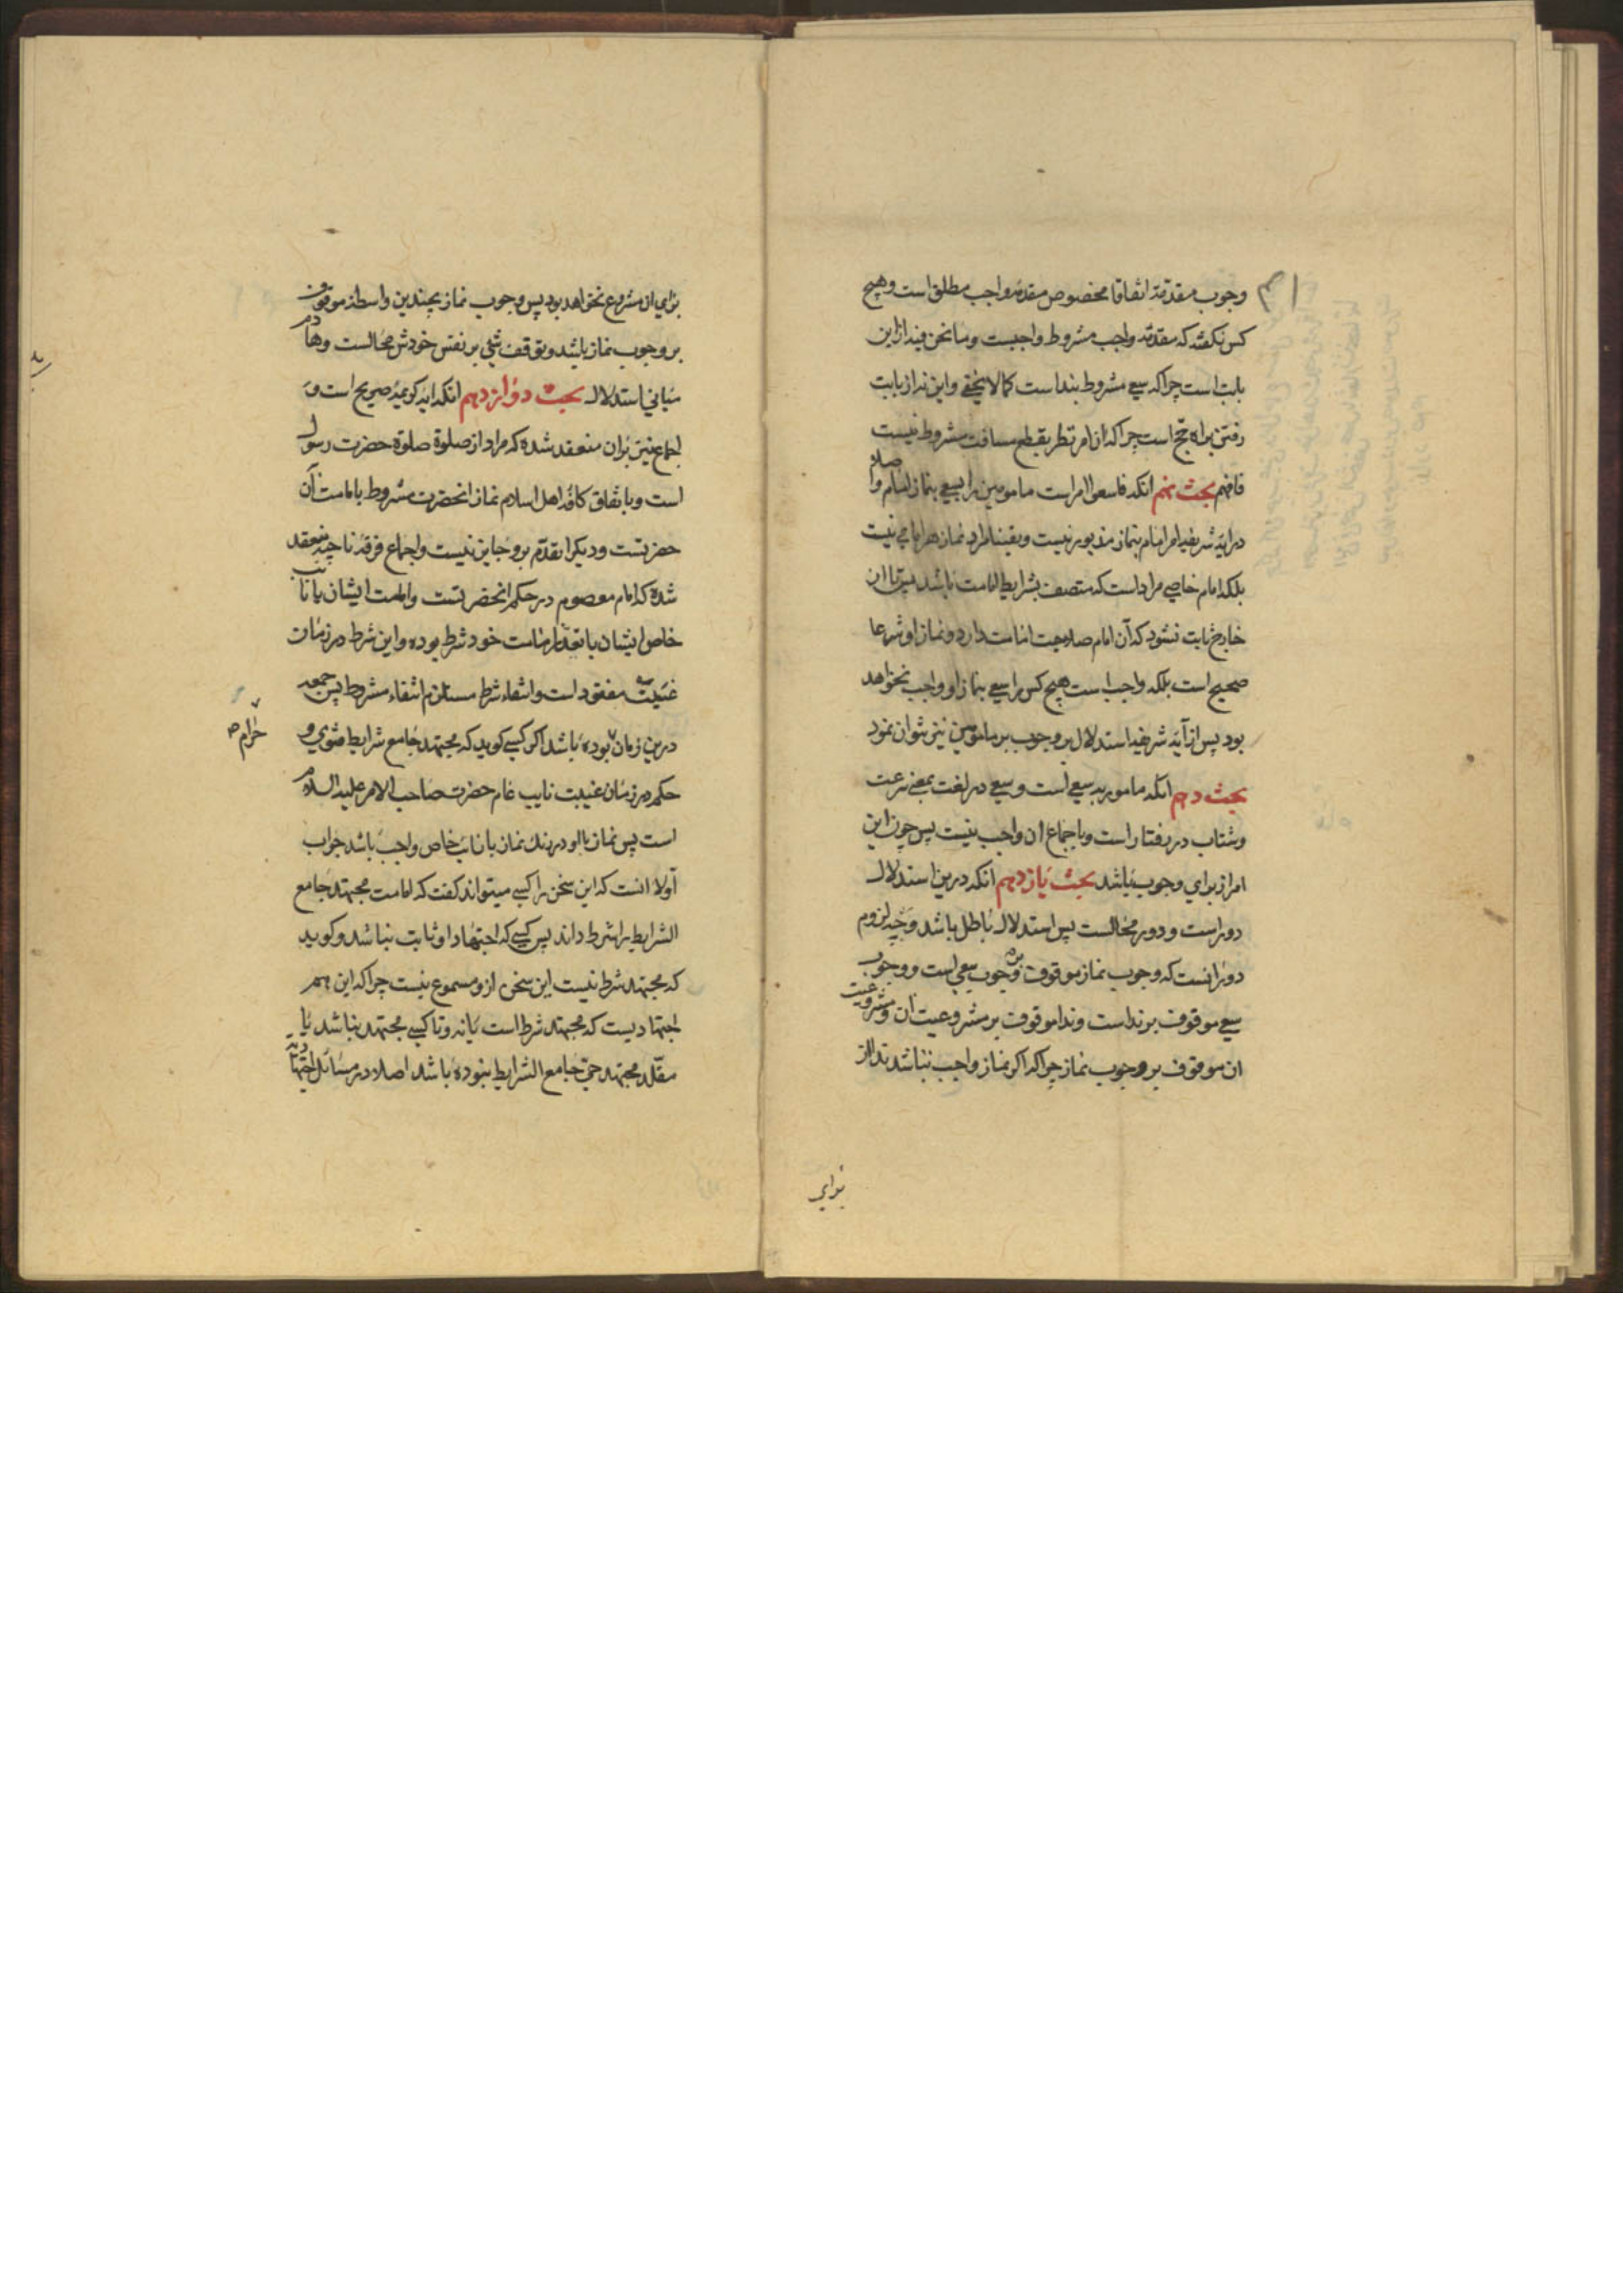 وجوب مقدمة اتفاقا مخصوص مقدمهٔ واجب مطلق است و هیچ
کس نگفته که مقدمه واجب مشروط واجبست و ما نحن فیه ازین
بابت است چرا که سعی مشروط بنداست کما لا یخفی و این نه از بابت
رفتن براه حج است چرا که ان امر نظر بقطع مسافت مشروط نیست
فافهم بحث نهم انکه فاسعوا امر است مامومین را بسعی بنماز امام و اصلا
در ایه شریفه امر امام بنماز مذبور نیست و یقینا مراد نماز هر امامی نیست
بلکه امام خاصی مراد است که متصف بشرایط امامت باشد پس تا از
خارج ثابت نشود که آن امام صلاحیت امامت دارد و نماز او شرعا
صحیح است بلکه واجب است هیچ کس را سعی بنماز او واجب نخواهد
بود پس از آیه شریفه استدلال بر وجوب بر مامومین نیز نتوان نمود
بحث دهم انکه مامور به سعی است و سعی در لغت بمعنی سرعت
و شتاب در رفتار است و باجماع ان واجب نیست پس چون این
امر از برای وجوب نباشد بحث یازدهم انکه درین استدلال
دور است و دور محالست پس استدلال باطل باشد وجه لزوم
دور انست که وجوب نماز موقوف بر وجوب سعی است و وجوب
سعی موقوف بر نداست و ندا موقوف بر مشروعیت ان و مشروعیت
ان موقوف بر وجوب نماز چرا که اکر نماز واجب نباشد ندا از
برای
برای ان مشروع نخواهد بود پس وجوب نماز بچندین واسطه موقوف
بر وجوب نماز باشد و توقف شیء بر نفس خودش محالست و هادم
مبانی استدلال بحث دوازدهم انکه ایه کریمه صریح است و
اجماع نیز بران منعقد شده که مراد از صلوة صلوة حضرت رسول
است و باتفاق کافه اهل اسلام نماز انحضرت مشروط بامامت آن
حضرتست و دیکرا تقدم برو جایز نیست و اجماع فرقه ناجیه منعقد
شده که امام معصوم در حکم انحضرتست و امامت ایشان یا نایب
خاص ایشان با تعذر امامت خود شرط بوده و این شرط در زمان
غیبت مفقود است و انتفاء شرط مستلزم انتفاء مشروط پس جمعه
درین زمان بوده باشد اکر کسی کوید که مجتهد جامع شرایط فتوی و
حرام صح
حکم در زمان غیبت نایب عام حضرت صاحب الامر علیه السلام
است پس نماز با او در رنک نماز با نایب خاص واجب باشد جواب
اولا انست که این سخن را کسی میتواند کفت که امامت مجتهد جامع
الشرایط را شرط داند پس کسی که اجتهاد او ثابت نباشد و کوید
که مجتهد شرط نیست این سخن ازو مسموع نیست چرا که این هم
اجتهادیست که مجتهد شرط است یا نه و تا کسی مجتهد نباشد یا
مقلد مجتهد حی جامع الشرایط نبوده باشد اصلا در مسائل اجتهادیه